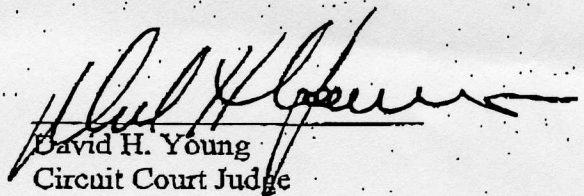 David H. Young
Circuit Court Judge